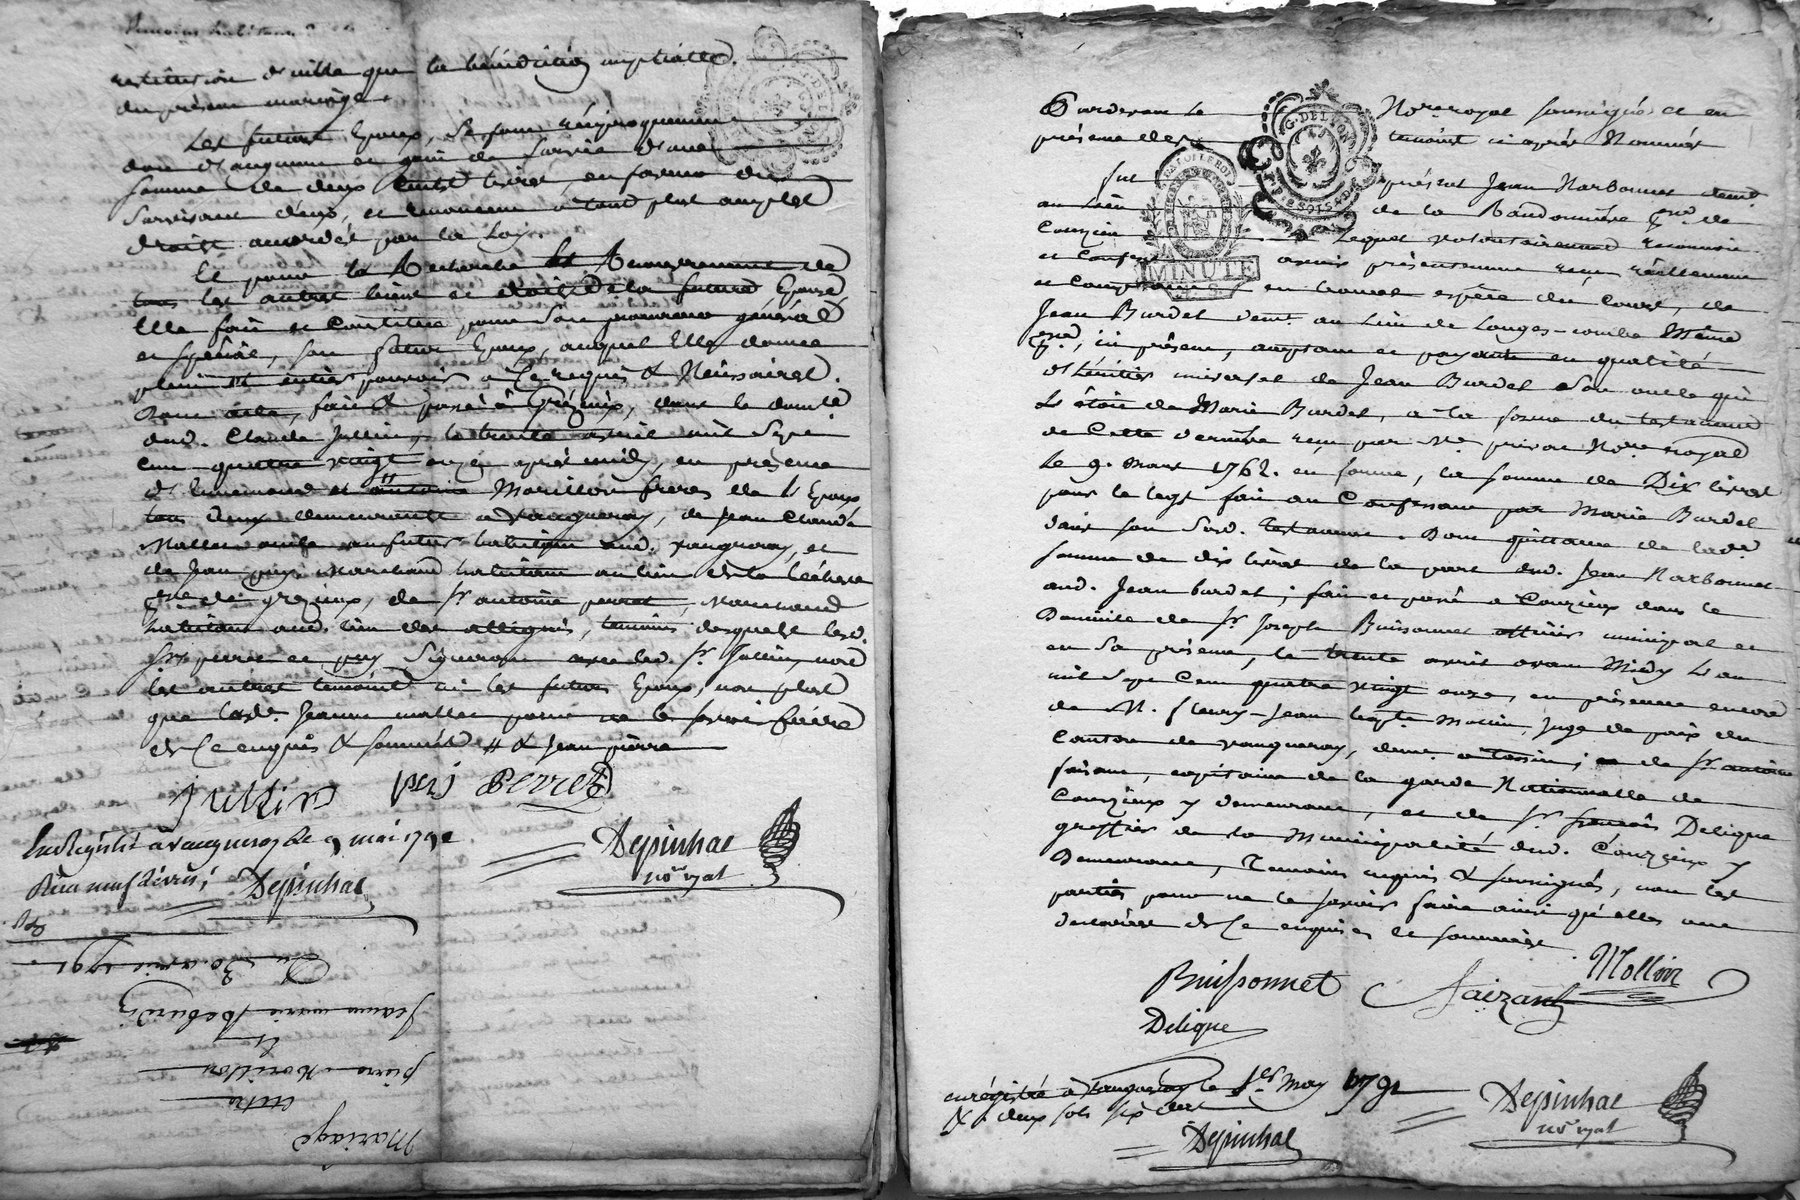 restitution de celle que la bénédiction nuptialle
du présent mariage.
Les futurs Epoux, se font réciproquement
don d'augment et gain de survie d'une
somme de deux cents livres, en faveur du
survivant d'eux, et renoncent à tout plus amples
droits accordés par la Loy.
Et pour la Recherche et Recouvrement de
tous les autres biens et droits de la future Epouse
Elle fait et Constitue pour son procureur général
et spécial, son futur Epoux, auquel Elle donne
plein et entier pouvoir à ce requis & Nécessaires.
Dont acte, fait & passé à Grézieux, dans le domlle
dud. Claude Jullin, le trente avril mil Sept
Cent quatre vingt onze après midy, en présence
Morillon frères de l'Epoux
tous deux demeurants à Vaugneray, de Jean Claude
Mallet habitant aud. Vaugneray, et
de Jean puy Marchand habitant au lieu de la
de Grezieux, de Sr. antoine perret, Marchand
habitant aud. lieu des témoins desquels lesd.
Srs perret et puy Signeront avec led. Sr. Jullin, non
les autres témoins ni les futurs Epoux, non plus
que lade. Jeanne mallet pour ne le savoir faire
de ce enquis & sommés # & Jean pierre
Jullin puy Perret
Enregistré à vaugneray le 9 mai 1791
Reçu neuf livres; Depinhac
Depinhac
nore royal
Du 30 avril 1791
Jeanne marie
Et
pierre Morillon
entre
Mariage
Pardevant Le Nore royal soussigné et en
présence des témoins ci après Nommés
fut présent Jean Narbonnet demt.
au Lieu de la Randonnière psse. de
Courzieu Lequel volontairement reconnoit
et Confesse avoir présentement reçu réellement
et Comptant en bonnes espèces du Cours, de
Jean Burdel demt. au Lieu de Longes-combe Même
psse., ici présent, acceptant et payant en qualité
d'héritier universel de Jean Burdel son oncle qui
L'étoit de Marie Burdel, à la forme du testament
de Cette dernière reçu par Me. privat Nore. royal
Le 9. Mars 1762. en somme, la somme de Dix livres
pour le legs fait au Confessant par Marie Burdel
dans son Susd. testament. Dont quittance de lade.
somme de dix livres de la part dud. Jean Narbonnet
aud. Jean burdel; fait et passé à Courzieux dans le
Domicile de Sr. Joseph Buissonnet officier municipal et
en Sa présence, le trente avril avant Midy L'an
mil Sept Cent quatre vingt onze, en présence encore
de M. fleury-Jean bapte. Mollin, Juge de paix du
Canton de vaugneray, demt. à tassin; et de Sr. antoine
faisant, capitaine de la garde Nationnalle de
Courzieux y demeurant, et de Sr. françois Deligue
greffier de la Municipalité dud. Courzieux y
Demeurant, Temoins requis & soussignés, non les
parties pour ne le savoir faire ainsi qu'elles ont
déclaré de ce enquises et sommées
Buissonnet Faizant Mollin
Deligue
enrégistré à Vaugneray le 1er May 1791
deux sols six drs
Depinhac
Depinhac
nore royal
G. DE LYON
MINUTE